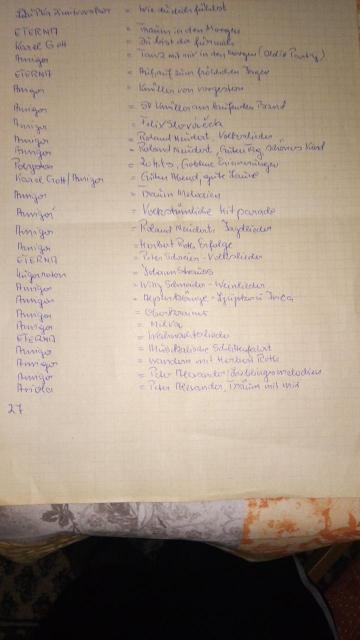 = Wie du dich fühlst
ETERNA = Traum in den Morgen
Karel Gott = Du bist da für mich
Amiga = Tanz mit mir in den Morgen (Oldie Party)
ETERNA = Auf, auf zum fröhlichen Jagen
Amiga = Knüller von vorgestern
Amiga = 50 Knüller am laufenden Band
Amiga = Felix Slováček
Amiga = Roland Neudert, Volkslieder
Amiga = Roland Neudert, Guten Tag, schönes Kind
= 20 Hits, Goldene Erinnerungen
Karel Gott/Amiga = Guten Abend, gute Laune
Amiga = Traum Melodien
Amiga = Volkstümliche Hitparade
Amiga = Roland Neudert, Jagdlieder
Amiga = Herbert Roth Erfolge
ETERNA = Peter Schreier - Volkslieder
= Johann Strauss
Amiga = Willy Schneider - Weinlieder
Amiga = Alpenklänge -
Amiga = Oberkrainer
Amiga = Milva
ETERNA = Weihnachtslieder
Amiga = Musikalische Schlittenfahrt
Amiga = wandern mit Herbert Roth
Amiga = Peter Alexander, Lieblingsmelodien
Ariola = Peter Alexander, Träum mit mir
27